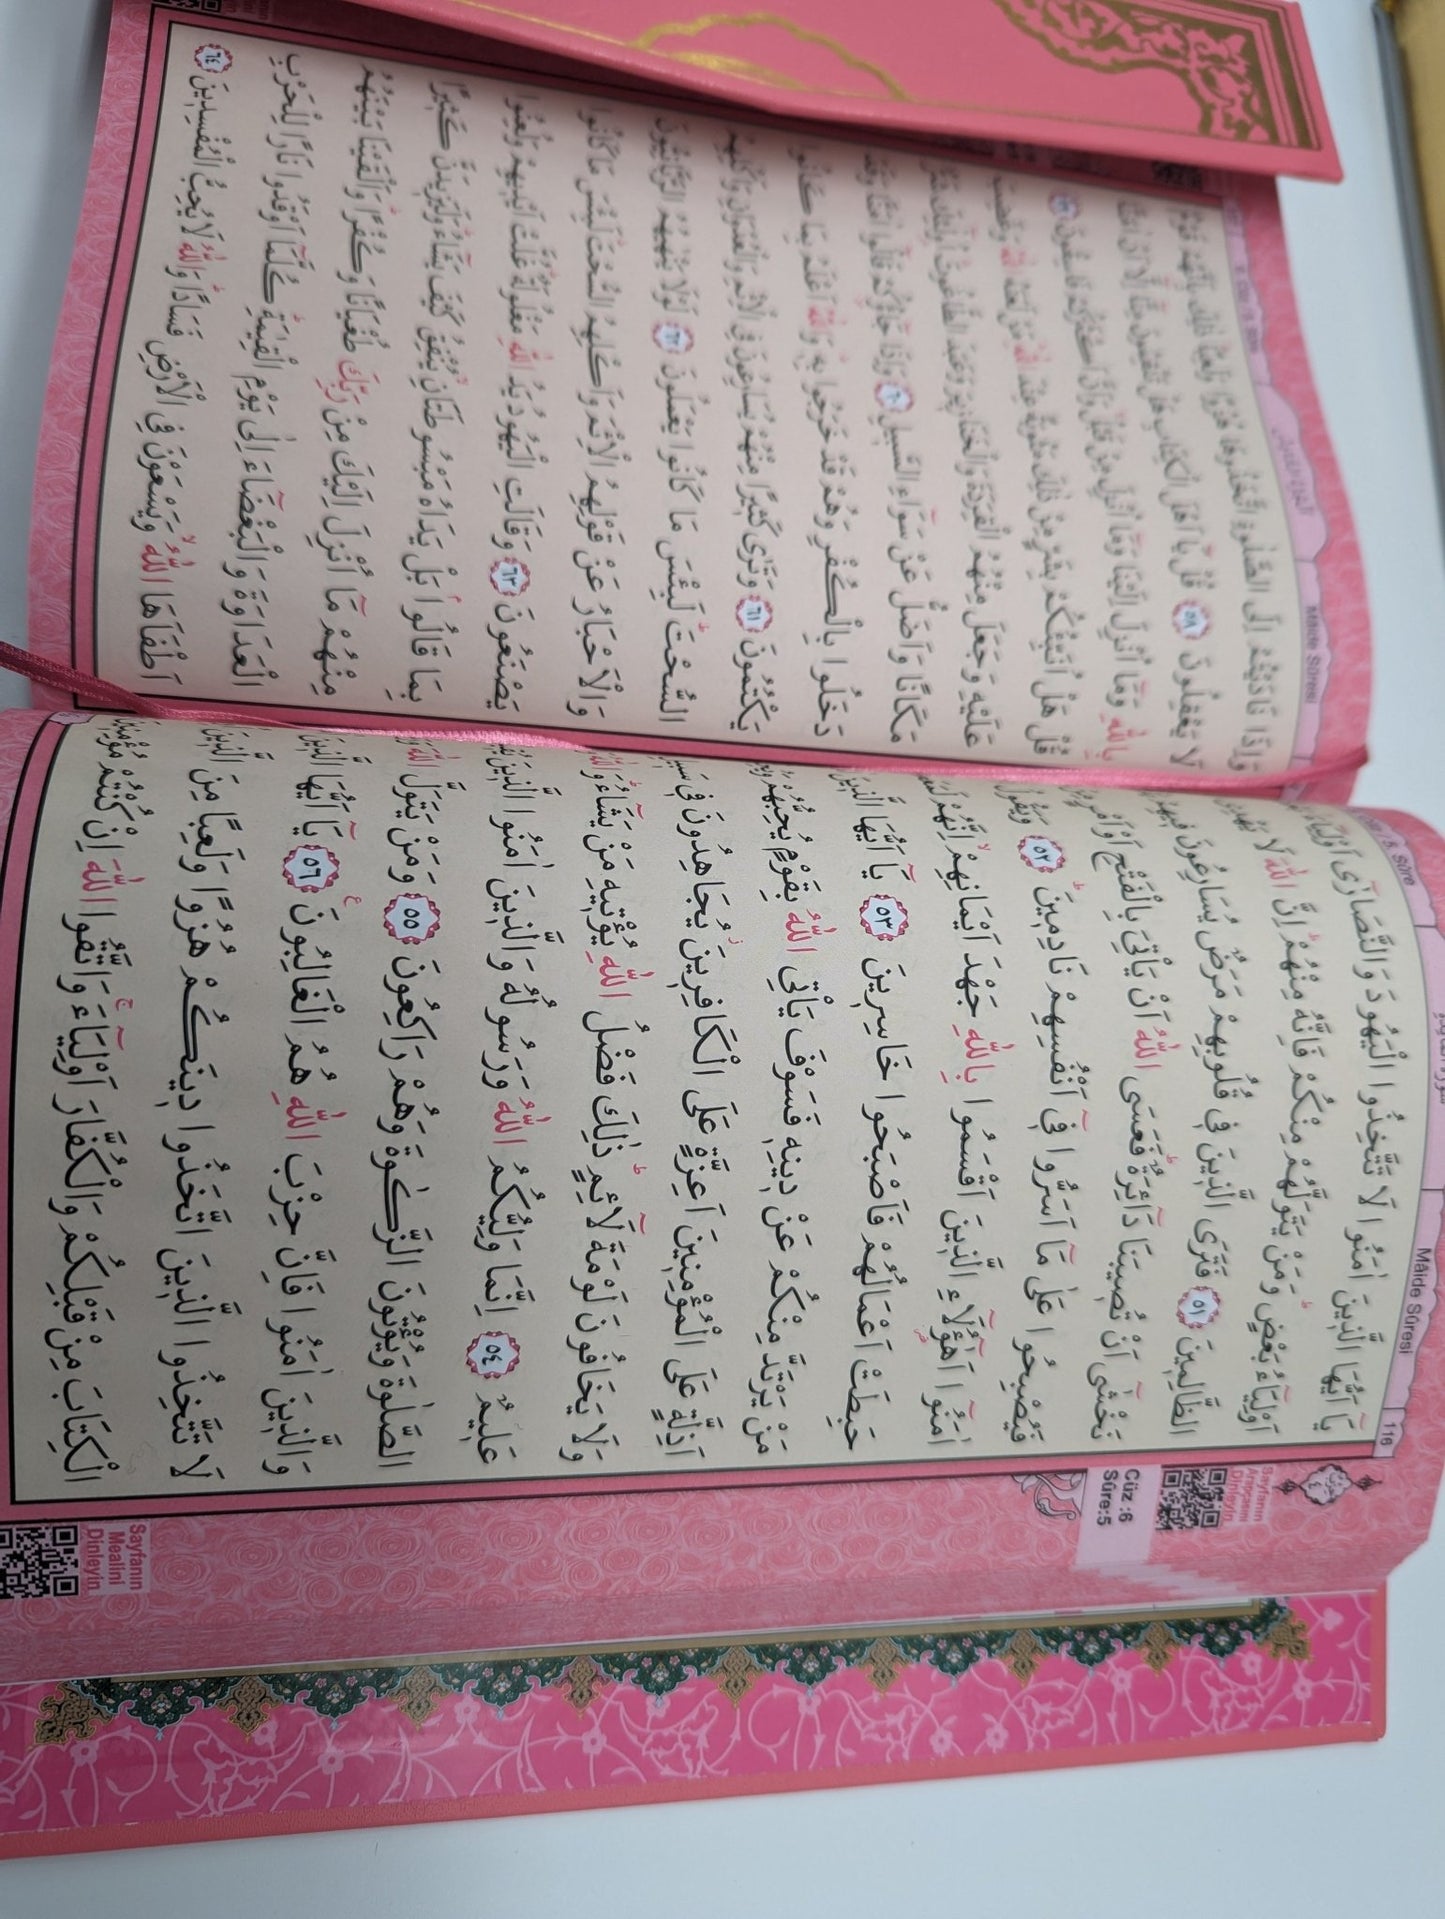 Cüz :6
Sûre:5
Sayfanın
Arapçasını
Dinleyin
116
Mâide Sûresi
5. Sûre
يَٓا اَيُّهَا الَّذِينَ اٰمَنُوا لَا تَتَّخِذُوا الْيَهُودَ وَالنَّصَارٰٓى اَوْلِيَٓاءَ
اَوْلِيَٓاءُ بَعْضٍ وَمَنْ يَتَوَلَّهُمْ مِنْكُمْ فَاِنَّهُ مِنْهُمْ اِنَّ اللّٰهَ لَا يَهْدِي
الظَّالِمِينَ ٥١ فَتَرَى الَّذِينَ فِي قُلُوبِهِمْ مَرَضٌ يُسَارِعُونَ فِيهِمْ
نَخْشٰٓى اَنْ تُصِيبَنَا دَٓائِرَةٌ فَعَسَى اللّٰهُ اَنْ يَأْتِيَ بِالْفَتْحِ اَوْ اَمْرٍ
فَيُصْبِحُوا عَلٰى مَٓا اَسَرُّوا فِٓي اَنْفُسِهِمْ نَادِمِينَ ٥٢ وَيَقُولُ
اٰمَنُٓوا اَهٰٓؤُلَٓاءِ الَّذِينَ اَقْسَمُوا بِاللّٰهِ جَهْدَ اَيْمَانِهِمْ اِنَّهُمْ
حَبِطَتْ اَعْمَالُهُمْ فَاَصْبَحُوا خَاسِرِينَ ٥٣ يَٓا اَيُّهَا الَّذِينَ
مَنْ يَرْتَدَّ مِنْكُمْ عَنْ دِينِهِ فَسَوْفَ يَأْتِي اللّٰهُ بِقَوْمٍ يُحِبُّهُمْ
اَذِلَّةٍ عَلَى الْمُؤْمِنِينَ اَعِزَّةٍ عَلَى الْكَافِرِينَ يُجَاهِدُونَ فِي
وَلَا يَخَافُونَ لَوْمَةَ لَٓائِمٍ ذٰلِكَ فَضْلُ اللّٰهِ يُؤْتِيهِ مَنْ يَشَٓاءُ وَاللّٰهُ
عَلِيمٌ ٥٤ اِنَّمَا وَلِيُّكُمُ اللّٰهُ وَرَسُولُهُ وَالَّذِينَ اٰمَنُوا الَّذِينَ
الصَّلٰوةَ وَيُؤْتُونَ الزَّكٰوةَ وَهُمْ رَاكِعُونَ ٥٥ وَمَنْ يَتَوَلَّ اللّٰهَ
وَالَّذِينَ اٰمَنُوا فَاِنَّ حِزْبَ اللّٰهِ هُمُ الْغَالِبُونَ ٥٦ يَٓا اَيُّهَا الَّذِينَ
لَا تَتَّخِذُوا الَّذِينَ اتَّخَذُوا دِينَكُمْ هُزُوًا وَلَعِبًا مِنَ الَّذِينَ
الْكِتَابَ مِنْ قَبْلِكُمْ وَالْكُفَّارَ اَوْلِيَٓاءَ وَاتَّقُوا اللّٰهَ اِنْ كُنْتُمْ مُؤْمِنِينَ
Sayfanın
Mealini
Dinleyin
Mâide Sûresi
وَاِذَا نَادَيْتُمْ اِلَى الصَّلٰوةِ اتَّخَذُوهَا هُزُوًا وَلَعِبًا ذٰلِكَ بِاَنَّهُمْ قَوْمٌ
لَا يَعْقِلُونَ ٥٨ قُلْ يَٓا اَهْلَ الْكِتَابِ هَلْ تَنْقِمُونَ مِنَّٓا اِلَّٓا اَنْ اٰمَنَّا
بِاللّٰهِ وَمَٓا اُنْزِلَ اِلَيْنَا وَمَٓا اُنْزِلَ مِنْ قَبْلُ وَاَنَّ اَكْثَرَكُمْ فَاسِقُونَ ٥٩
قُلْ هَلْ اُنَبِّئُكُمْ بِشَرٍّ مِنْ ذٰلِكَ مَثُوبَةً عِنْدَ اللّٰهِ مَنْ لَعَنَهُ اللّٰهُ وَغَضِبَ
عَلَيْهِ وَجَعَلَ مِنْهُمُ الْقِرَدَةَ وَالْخَنَازِيرَ وَعَبَدَ الطَّاغُوتَ اُولٰٓئِكَ شَرٌّ
مَكَانًا وَاَضَلُّ عَنْ سَوَٓاءِ السَّبِيلِ ٦٠ وَاِذَا جَٓاؤُكُمْ قَالُٓوا اٰمَنَّا وَقَدْ
دَخَلُوا بِالْكُفْرِ وَهُمْ قَدْ خَرَجُوا بِهِ وَاللّٰهُ اَعْلَمُ بِمَا كَانُوا
يَكْتُمُونَ ٦١ وَتَرٰى كَثِيرًا مِنْهُمْ يُسَارِعُونَ فِي الْاِثْمِ وَالْعُدْوَانِ وَاَكْلِهِمُ
السُّحْتَ لَبِئْسَ مَا كَانُوا يَعْمَلُونَ ٦٢ لَوْلَا يَنْهٰيهُمُ الرَّبَّانِيُّونَ
وَالْاَحْبَارُ عَنْ قَوْلِهِمُ الْاِثْمَ وَاَكْلِهِمُ السُّحْتَ لَبِئْسَ مَا كَانُوا
يَصْنَعُونَ ٦٣ وَقَالَتِ الْيَهُودُ يَدُ اللّٰهِ مَغْلُولَةٌ غُلَّتْ اَيْدِيهِمْ وَلُعِنُوا
بِمَا قَالُوا بَلْ يَدَاهُ مَبْسُوطَتَانِ يُنْفِقُ كَيْفَ يَشَٓاءُ وَلَيَزِيدَنَّ كَثِيرًا
مِنْهُمْ مَٓا اُنْزِلَ اِلَيْكَ مِنْ رَبِّكَ طُغْيَانًا وَكُفْرًا وَاَلْقَيْنَا بَيْنَهُمُ
الْعَدَاوَةَ وَالْبَغْضَٓاءَ اِلٰى يَوْمِ الْقِيٰمَةِ كُلَّمَٓا اَوْقَدُوا نَارًا لِلْحَرْبِ
اَطْفَاَهَا اللّٰهُ وَيَسْعَوْنَ فِي الْاَرْضِ فَسَادًا وَاللّٰهُ لَا يُحِبُّ الْمُفْسِدِينَ ٦٤